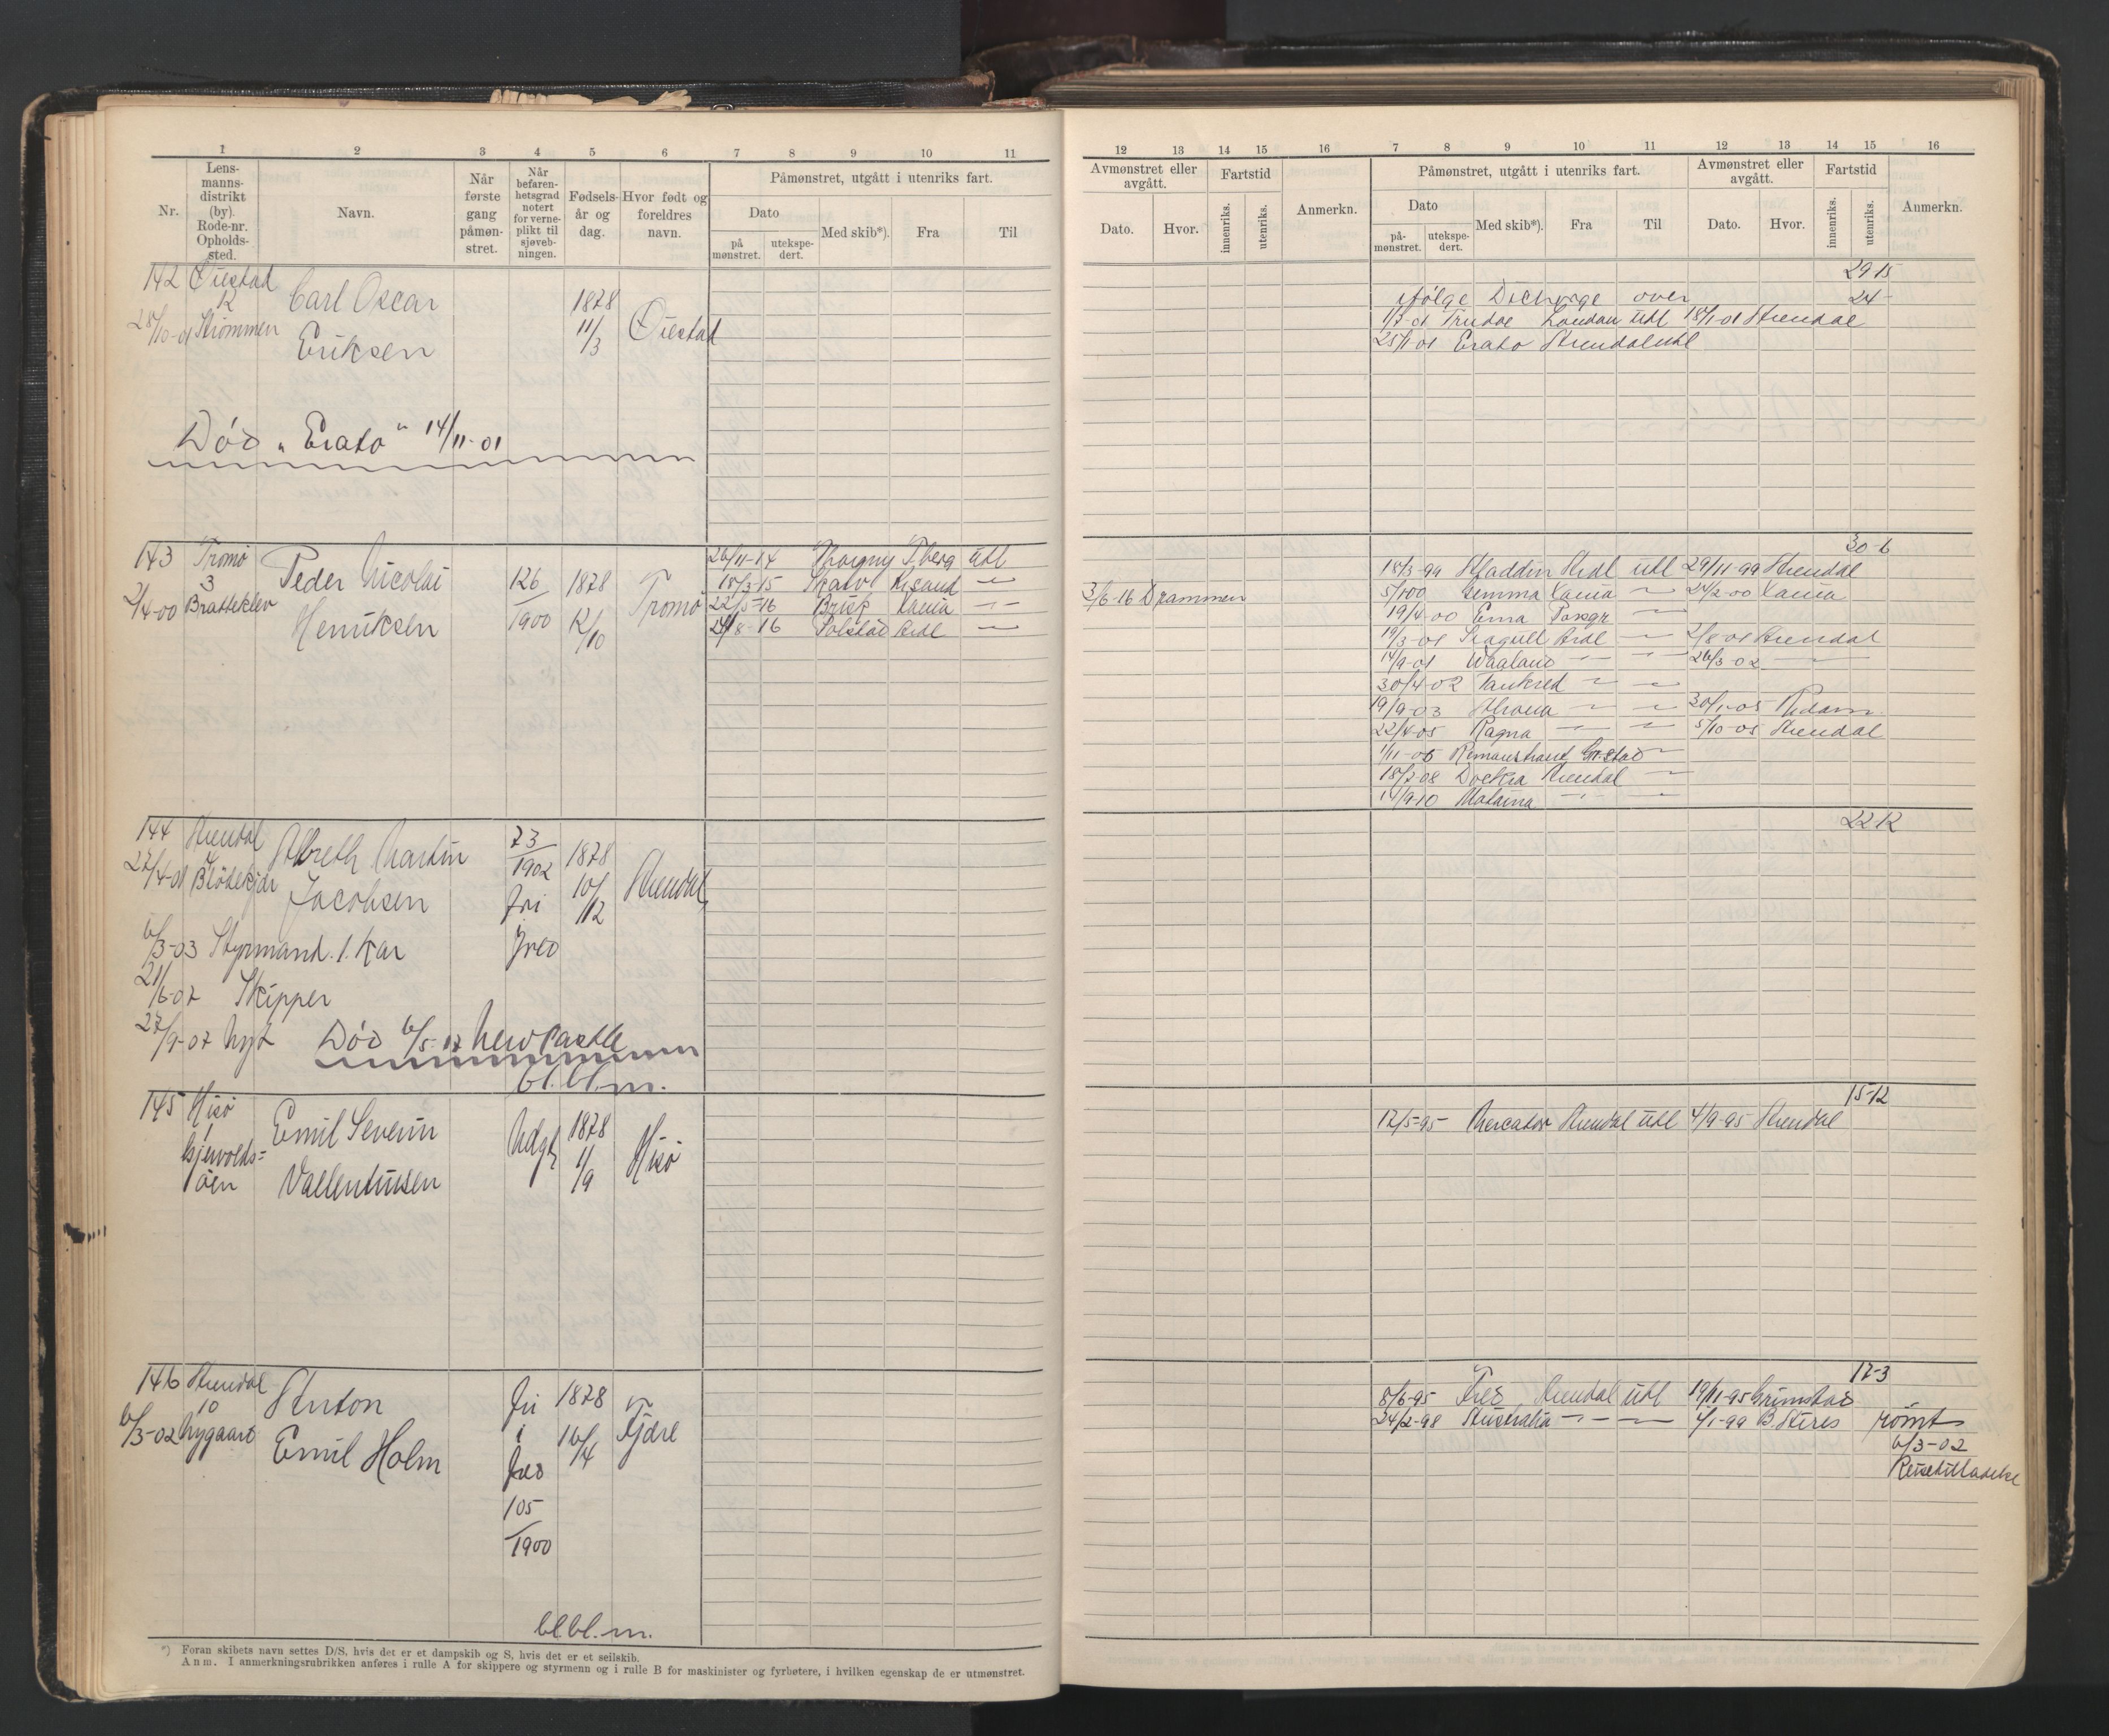 1 2 3 4 5 6 7 8 9 10 11
Nr.
Lens-
manns-
distrikt
(by).
Rode-nr.
Opholds-
sted.
Navn.
Når
første
gang
påmøn-
stret.
Når
befaren-
hetsgrad
notert
for verne-
plikt til
sjøveb-
ningen.
Fødsels-
år og
dag.
Hvor født og
foreldres
navn.
Påmønstret, utgått i utenriks fart.
Dato
på
mønstret.
utekspe-
dert.
Med skib*).
Fra
Til
142 Øiestad
12
28/10-01 Strømmen
Carl Oscar
Eriksen
1878
11/3
Øiestad
Död "Erato" 14/11-01
143 Tromö
3
2/4-00 Bratteklev
Peder Nicolai
Henriksen
126
1900
1878
12/10
Tromö
26/11-14 Thorgny Tberg Utl
18/3-15 Skato Krsand
22/5-16 Brisk Xania
24/8-16 Solstad Ardl
144 Arendal
27/4-01 Blödekjær
Albreth Martin
Jacobsen
73
1902
Fri
Fred
1878
10/12
Arendal
6/3-03 Styrmand. 1. Kar
21/6-07 Skipper
27/9-07 Nyt
Död 6/5-17 Newcastle
bl.bl.m.
145 Hisö
1
Gjervolds=
öen
Emil Severin
Vallentinsen
Udgt
1878
11/9
Hisö
146 Arendal
10
6/3-02 Nygaard
Anton
Emil Holm
Fri
i
Fred
105
1900
1878
16/4
Fjære
bl.bl.m.
*) Foran skibets navn settes D/S, hvis det er et dampskib og S, hvis det er et seilskib.
Anm. I anmerkningsrubrikken anføres i rulle A for skippere og styrmenn og i rulle B for maskinister og fyrbøtere, i hvilken egenskap de er utmønstret.
12 13 14 15 16 7 8 9 10 11 12 13 14 15 16
Avmønstret eller
avgått.
Dato.
Hvor.
Fartstid
innenriks.
utenriks.
Anmerkn.
Påmønstret, utgått i utenriks fart.
Dato
på-
mønstret.
utekspe-
dert.
Med skib*).
Fra
Til
Avmønstret eller
avgått.
Dato.
Hvor.
Fartstid
innenriks.
utenriks.
Anmerkn.
29-15
ifölge Decharge over 24-
1/7-01 Trudae London Utl 18/1-01 Arendal
25/1-01 Erato Arendal Utl
3/6-16 Drammen
30-6
18/3-99 Aladdin Ardl Utl 29/11-99 Arendal
5/1-00 Gemma Xania 24/2-00 Xania
19/4-00 Erna Porsgr
19/3-01 Seagull Ardl 2/8-01 Arendal
14/9-01 Vaaland 26/3-02
30/4-02 Tankred
19/9-03 Athena 30/1-05 Rdam
22/4-05 Ragna 5/10-05 Arendal
1/11-05 Romanshand Gr.stad
18/2-08 Doctra Arendal
14/9-10 Matanna
22-12
15-12
12/5-95 Mercator Arendal Utl 4/9-95 Arendal
17-3
8/6-95 Fred Arendal Utl 19/11-95 Grimstad
24/2-98 Australia 4/1-99 B Aires römt
6/3-02
Reisetilladelse